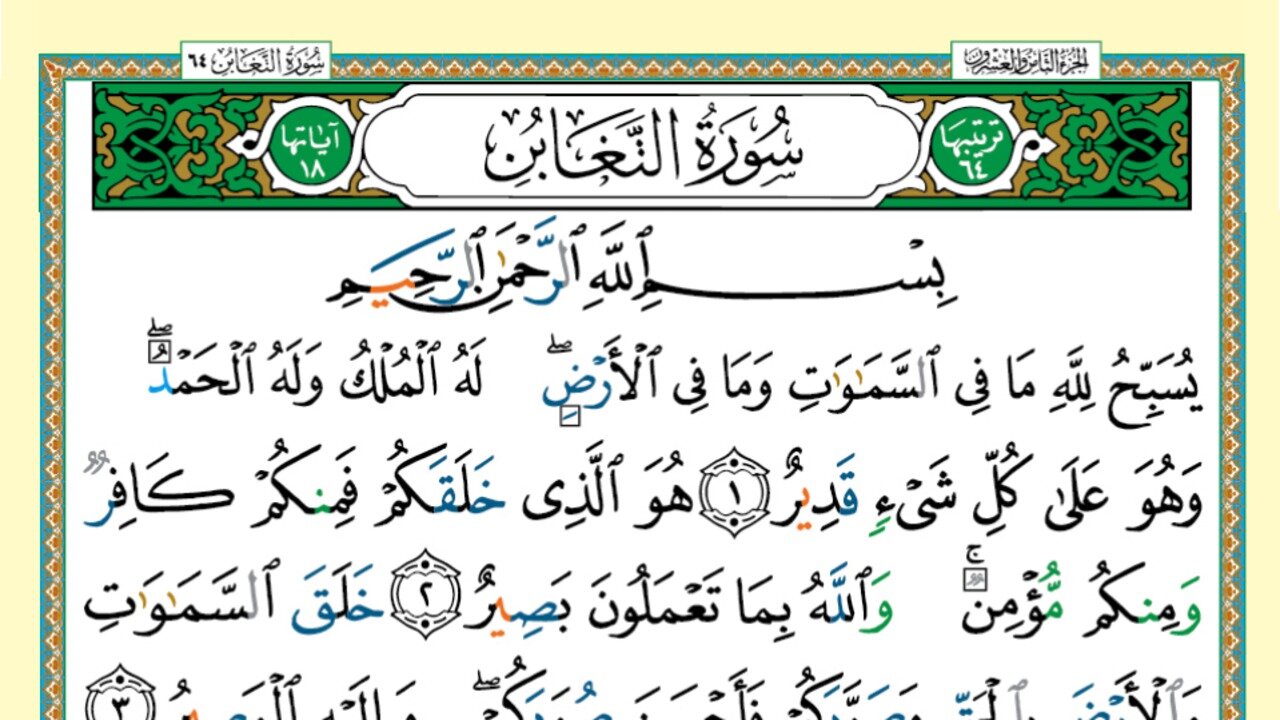 الجزء الثامن والعشرون
سورة التغابن ٦٤
ترتيبها ٦٤
سُورَةُ التَّغَابُنِ
آياتها ١٨
بِسْمِ ٱللَّهِ ٱلرَّحْمَٰنِ ٱلرَّحِيمِ
يُسَبِّحُ لِلَّهِ مَا فِي ٱلسَّمَٰوَٰتِ وَمَا فِي ٱلْأَرْضِ ۖ لَهُ ٱلْمُلْكُ وَلَهُ ٱلْحَمْدُ ۖ
وَهُوَ عَلَىٰ كُلِّ شَىْءٍ قَدِيرٌ ١ هُوَ ٱلَّذِى خَلَقَكُمْ فَمِنكُمْ كَافِرٌ
وَمِنكُم مُّؤْمِنٌ ۚ وَٱللَّهُ بِمَا تَعْمَلُونَ بَصِيرٌ ٢ خَلَقَ ٱلسَّمَٰوَٰتِ
وَٱلْأَرْضَ بِٱلْحَقِّ وَصَوَّرَكُمْ فَأَحْسَنَ صُوَرَكُمْ ۖ وَإِلَيْهِ ٱلْمَصِيرُ ٣